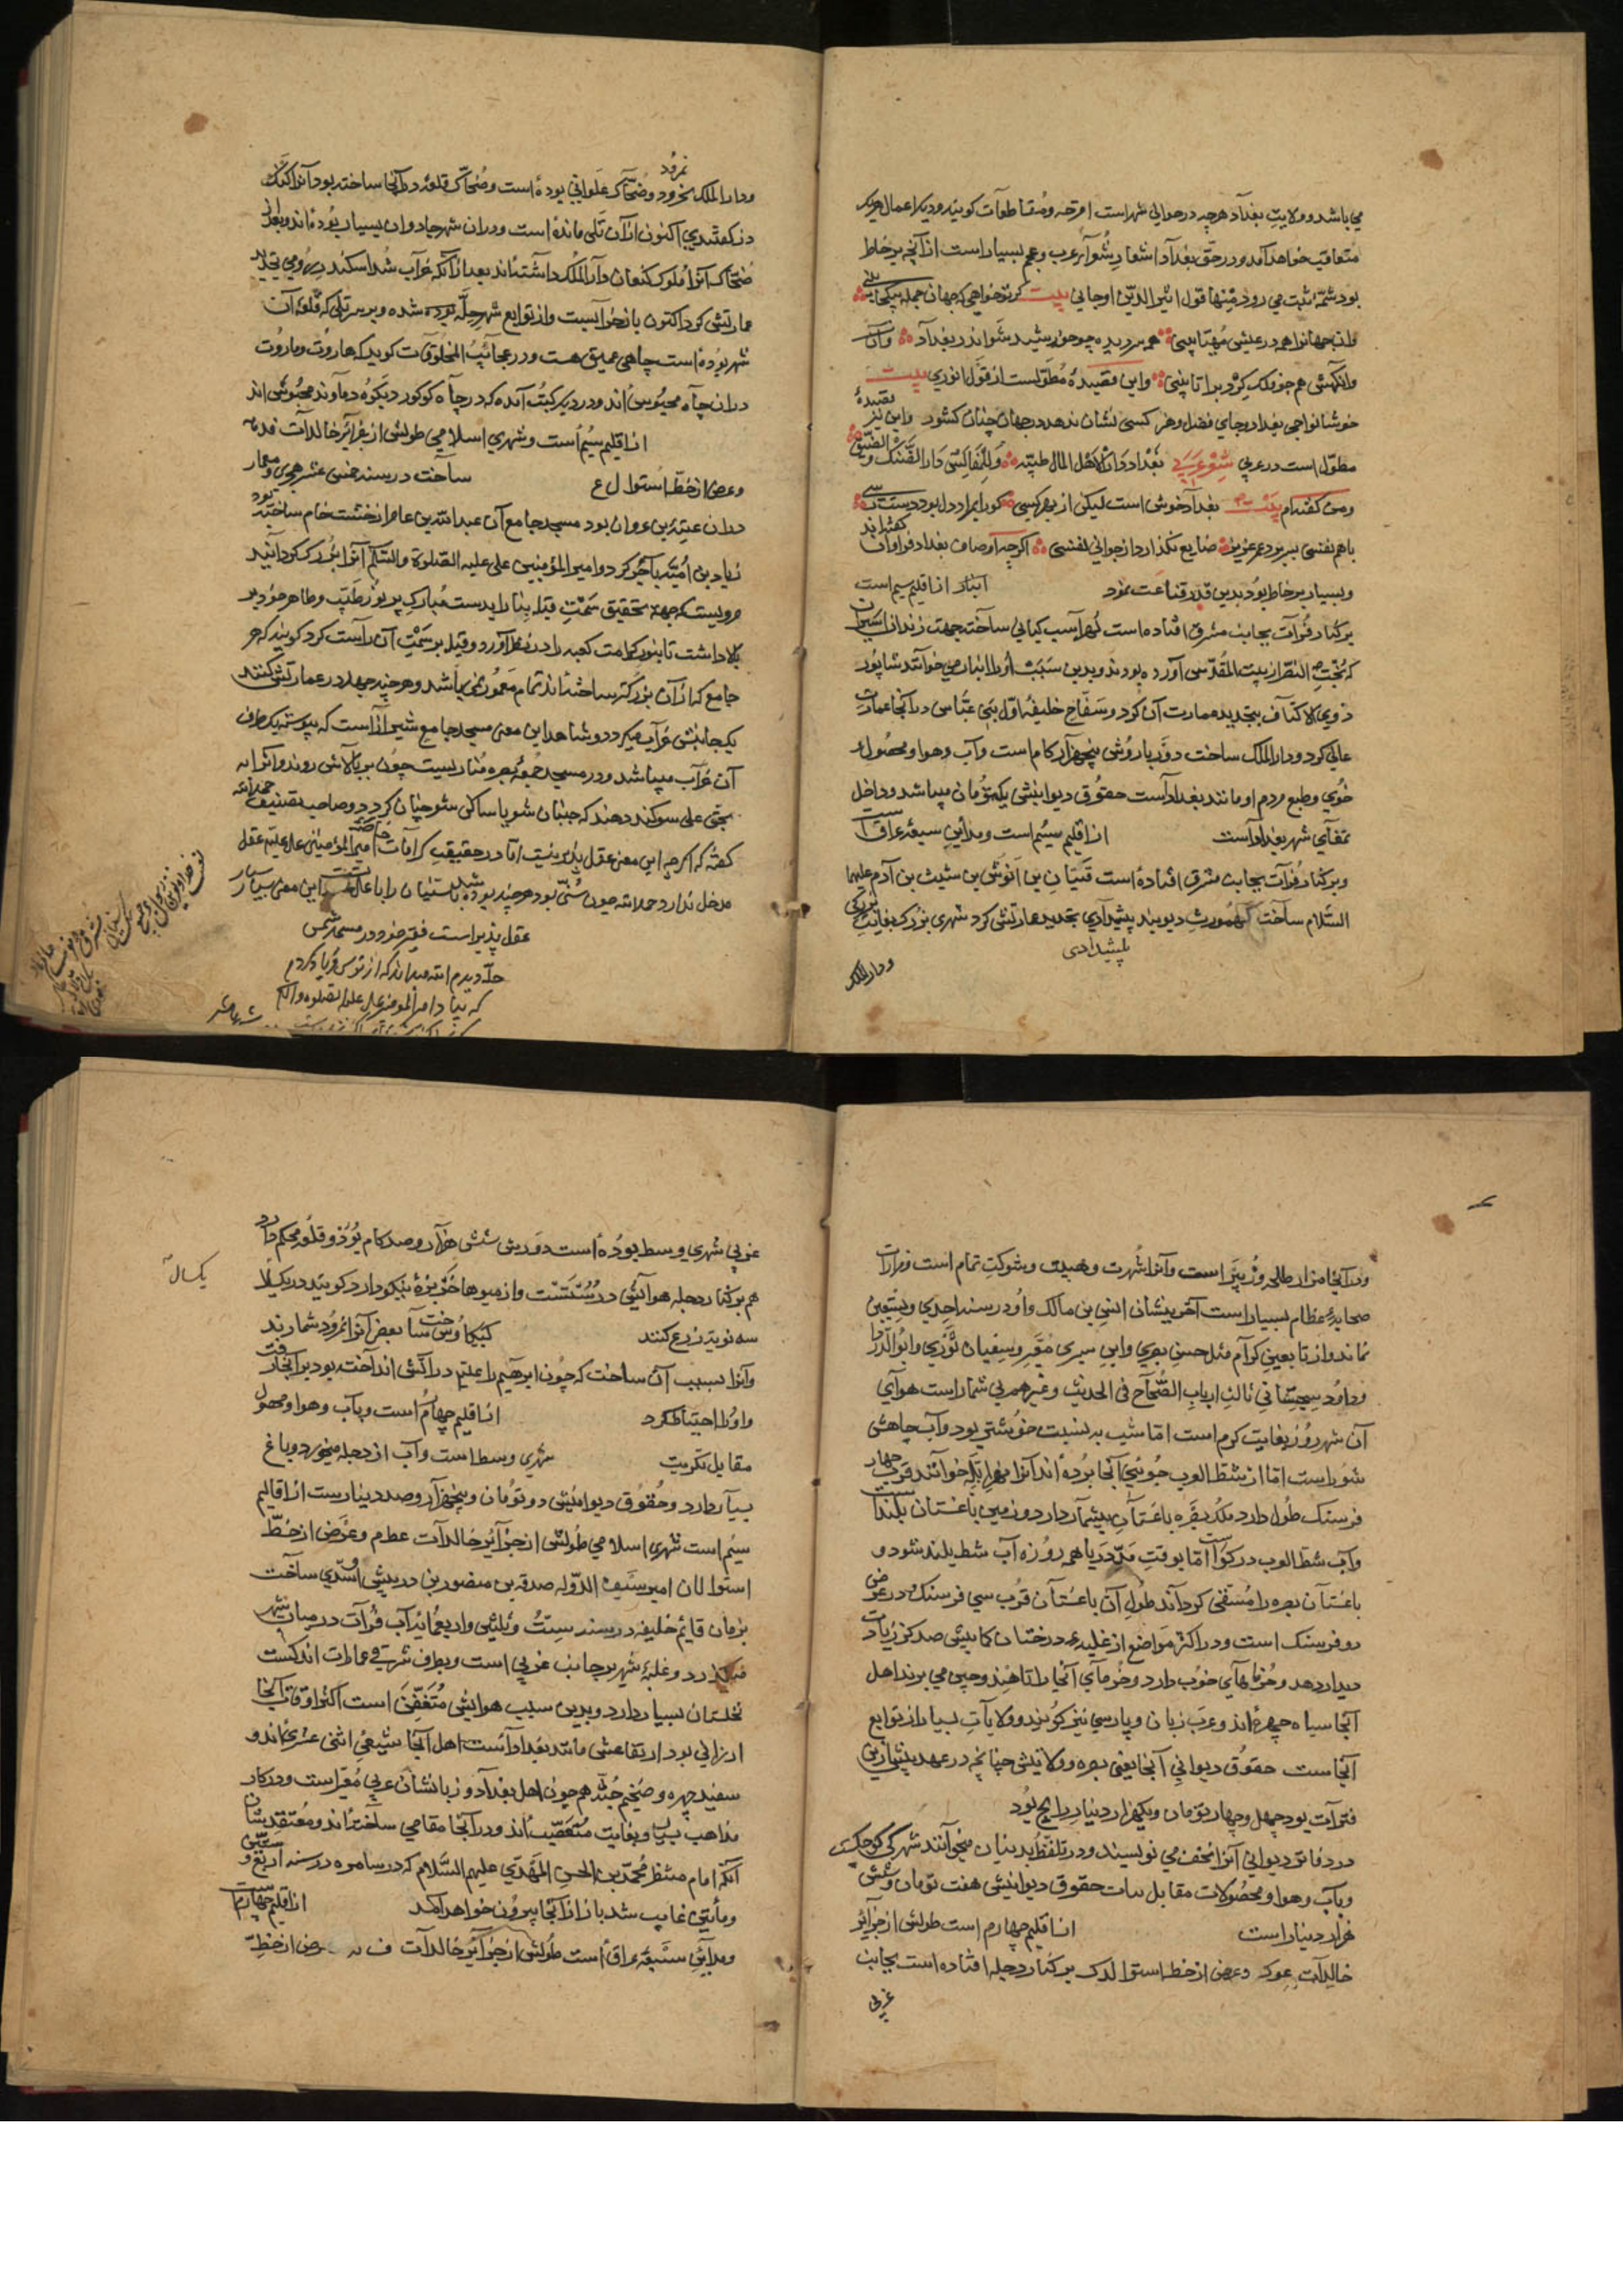 می باشد و ولایت بغداد هرچه در حوالی شهر است اقرحه و مقاطعات کویند و دیکر اعمال هریک
متعاقب خواهد آمد و در حق بغداد اشعار شعرآء عرب و عجم بسیار است از آنچه بر خاطر
بود شمّهٔ ثبت می رود منها قول اثیر الدّین اوجانی بیت کر تو خواهی که جهان جمله بیکجا بینی
وان جهانرا همه در عیشی مهیّا بینی همه در دیده چو خورشید شو اندر بغداد
وانکهش هم چو فلک کرد برا تا بینی واین قصیدهٔ مطوّلست از قول انوری بیت
خوشا نواحی بغداد و جای فضل و هنر کسی نشان ندهد در جهان چنان کشور واین نیز قصیدهٔ
مطوّل است در عربی شعر عربی بغداد دار لاهل المال طیّبة وللمفالیس دار الضّنک والضّیق
ومن کفته‌ام بیت بغداد خوش است لیکن از بهر کسی کورا بمراد دل بود دست رسی
با هم نفسی ببرد عمر عزیز ضایع نکذارد از جوانی نفسی اکرچه اوصاف بغداد فراوان کفته‌اند
وبسیار بر خاطر بود بدین قدر قناعت نمود انبار از اقلیم سیم است
بر کنار فرات بجانب مشرق افتاده است لهراسب کیانی ساخت جهت زندان اسیران
که بخت النصر از بیت المقدّس آورده بودند و بدین سبب اورا انبار می خوانند شاپور
ذوی الاکتاف بتجدید عمارت آن کرد و سفّاح خلیفهٔ اوّل بنی عبّاس در آنجا عمارت
عالی کرد و دار الملک ساخت دور باروش پنجهزار کام است وآب وهوا ومحصول و
خوی وطبع مردم او مانند بغداد است حقوق دیوانیش یکتومان میباشد و داخل
تمغآی شهر بغداد است از اقلیم سیّم است ومداین سبعهٔ عراق است
وبر کنار فرات بجانب مشرق افتاده است قینان بن انوش بن شیث بن آدم علیهما
السّلام ساخت طهمورث دیوبند پیشدادی تجدید عمارتش کرد شهری بزرک بغایت
پیشدادی
ودار الملک
نمرود
ودار الملک نمرود وضحّاک علوانی بوده است وضحّاک قلعهٔ در آنجا ساخته بود آنرا کنک
دز کفتندی اکنون از آن تلّی مانده است ودران شهر جادوان بسیار بوده‌اند و بعد از
ضحّاک آنرا ملوک کنعان دار الملک داشته‌اند بعد ازآنکه خرآب شد اسکندر رومی تجدید
عمارتش کرد اکنون باز خرابست واز توابع شهر حلّه شده وبر سر تلی که قلعهٔ آن
شهر بوده است چاهی عمیق هست ودر عجائب المخلوقات کوید که هاروت وماروت
دران چاه محبوس‌اند ودر دیکر کتب آمده که در چاه کوکور دیکوه دماوند محبوس‌اند
از اقلیم سیّم است وشهری اسلامی طولش از جزائر خالدات فدمه
وعرض از خط استوا ل ع ساخت در سنه خمس عشر هجری ومعمار
دران عتبة بن غزوان بود مسجد جامع آن عبدالله بن عامر از خشت خام ساخته بود
زیاد بن امیّه بآجر کرد وامیر المؤمنین علی علیه الصّلوة والسّلم آنرا بزرک کردانید
مرویست که جهة تحقیق سمت قبله بنا را بدست مبارک پر نور طیّب وطاهر خود بر
بالا داشت تا بنور کرامت کعبه را در نظر آورد وقبله بر سمت آن راست کرد کویند که هر
جامع که ازآن بزرکتر ساخته‌اند تمام معمور نمی باشد وهر چند جهد در عمارتش کنند
یکجانبش خرآب میکردد وشاهد این معنی مسجد جامع شیراز است که پیوسته یکطرف
آن خرآب میباشد ودر مسجد جمعهٔ بصره مناریست چون بر بالاش روند و آنرا
بحقّ علی سوکند دهند که جنبان شو یا ساکن شو چنان کردد وصاحب تصنیف حمدالله
کفته که اکرچه این معنی عقل پذیر نیست امّا در حقیقت کرامات امیر المؤمنین علی علیّه عقل
مدخل ندارد حمدالله چون سنّی بود هرچند بوده سنیان را با عالم این معنی بسیار
عقل پذیر است فقیر خود در مسجد شمس
حله دیدم الله میداند که از ترس فریاد کردم
که بنیاد امیر المؤمنین علی علیه الصلوة والسلم
ودر آنجا مزار طلحه وزبیر است وآنرا شهرت وهیبت وشوکت تمام است ومزارات
صحابهٔ عظام بسیار است آخرینشان انس بن مالک واو در سنه احدی وتسعین
نماند واز تابعین کرام مثل حسن بصری وابن سیرین معبّر وسفیان ثوری وابو الدّردا
وداود سجستانی ثالث ارباب الصّحاح فی الحدیث وغیرهم بی شمار است هوای
آن شهر روز بغایت کرم است امّا شب به نسبت خوشتر بود وآب چاهش
شور است امّا از شط العرب جوئی آنجا برده‌اند آنرا نهر ابلّه خوانند قرب چهار
فرسنک طول دارد ملک بصره باغستان بیشمار دارد وزمین باغستان بلند است
وآب شط العرب در کو است امّا بوقت مدّ دریا همه روزه آب شط بلند شود و
باغستان بصره را مسقی کرداند طول آن باغستان قرب سی فرسنک ودر عرض
دو فرسنک است ودر اکثر مواضع از غلبهٔ درختان کمابیش صد کز زیادت
دیدار دهد وخرماهای خوب دارد وخرمای آنجا را تا هند وچین می برند اهل
آنجا سیاه چهره‌اند وعرب زبان وپارسی نیز کویند وولایات بسیار از توابع
آنجاست حقوق دیوانی آنجا یعنی بصره وولایتش چنانچه در عهد پیشین زمین
فترات بود چهل وچهار تومان ویکهزار دینار رایج بود
در دفاتر دیوانی آنرا مخفف می نویسند ودر تلفّظ بدنیان میخوانند شهرکی کوچکست
وباب وهوا ومحصولات مقابل بیات حقوق دیوانیش هفت تومان وشش
هزار دینار است از اقلیم چهارم است طولش از جزآئر
خالدات عوکه وعرض از خط استوا لدک بر کنار دجله افتاده است بجانب
غربی
غربی شهری وسط بوده است دورش شش هزار وصد کام بود وقلعهٔ محکم دارد
هم بر کنار دجله هوایش درستست واز میوها خربزهٔ نیکو دارد کویند در یکسال
یکسال
سه نوبت زرع کنند کیکاوس ساخت بعضی آنرا نمرود شمارند
وآنرا بسبب آن ساخت که چون ابرهیم را علیّه در آتش انداخته بود بر آنجا رفت
واورا احتیاط کرد از اقلیم چهارم است وباب وهوا ومحصول
مقابل تکریت شهری وسط است وآب از دجله میخورد وباغ
بسیار دارد وحقوق دیوانیش دو تومان وپنجهزار وصد دینارست از اقالیم
سیم است شهری اسلامی طولش از جزآئر خالدات عط م وعرض از خط
استوا لان امیر سیف الدّوله صدقه بن منصور بن دبیس اسدی ساخت
بزمان قائم خلیفه در سنه ستّ وثلثین واربعمائه آب فرات در میان شهر
میکذرد وغلبهٔ شهر بر جانب غربی است وبطرف شرقی عمارات اندکست
نخلستان بسیار دارد وبدین سبب هوایش متعفّن است اکثر اوقات آنجا
ارزانی بود ارتفاعش مانند بغداد است اهل آنجا شیعی اثنی عشری‌اند و
سفید چهره وضخیم جثّه هم چون اهل بغداد وزبانشان عربی مغیّر است ودر کار
مذاهب بسیار وبغایت متعصّب‌اند ودر آنجا مقامی ساخته‌اند ومعتقدشان
آنکه امام منتظر محمّد بن الحسن المهدی علیهم السّلام که در سامره در سنه اربع و ستین
ومأتین غایب شد باز از آنجا بیرون خواهد آمد از اقلیم چهارم است
ومداین سبعه عراق است طولش از جزآئر خالدات ف عرض از خط